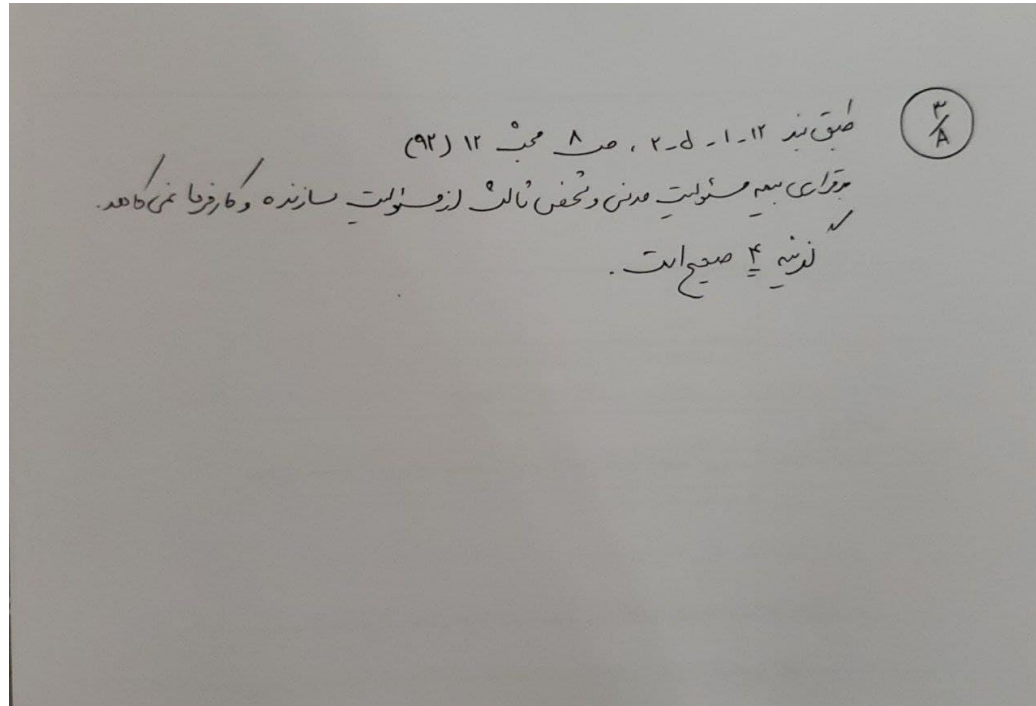 ۳/A
طبق بند ۱۲-۱-۵-۲ ، ص ۸ مبحث ۱۲ (۹۲)
برقراری بیمه مسئولیت مدنی و شخص ثالث از مسئولیت سازنده و کارفرما نمی‌کاهد.
گزینه ۴ صحیح است.